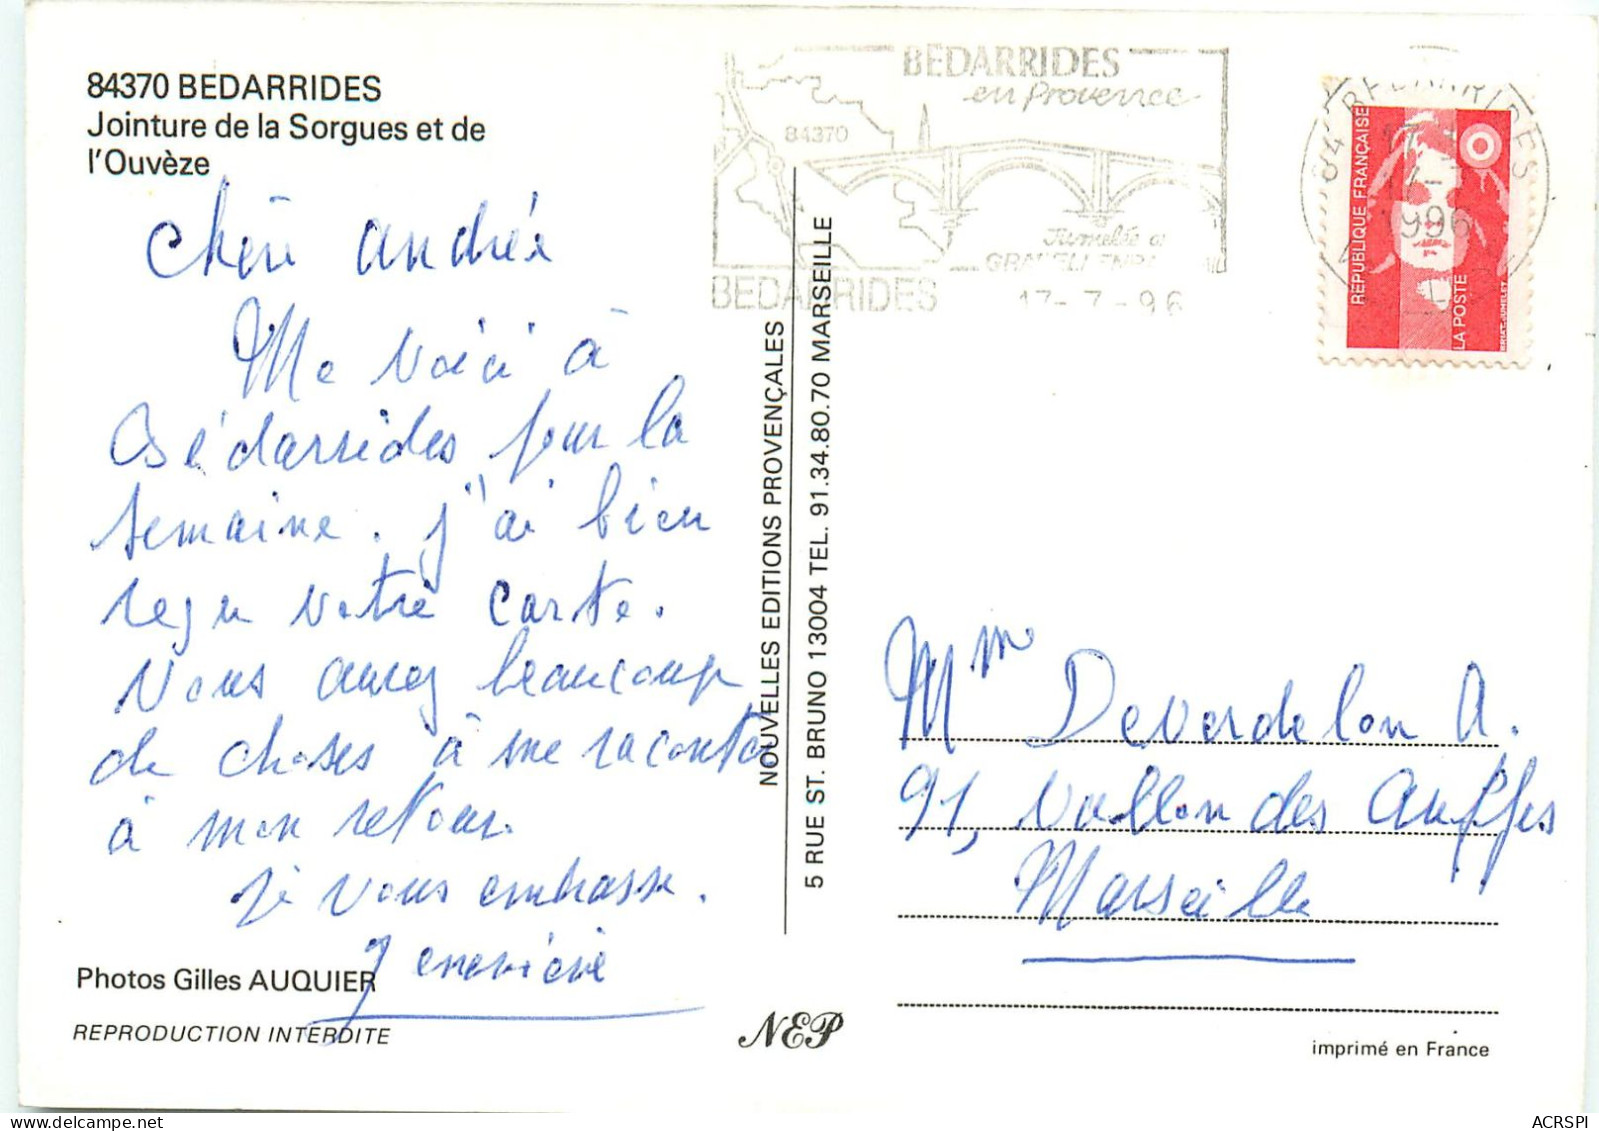 84370 BEDARRIDES
Jointure de la Sorgues et de
l'Ouvèze
Chère Andrée
Me voici à
Bédarrides pour la
semaine. J'ai bien
reçu votre carte.
Vous aurez beaucoup
de choses à me raconter
à mon retour.
Je vous embrasse.
Geneviève
Photos Gilles AUQUIER
REPRODUCTION INTERDITE
NOUVELLES EDITIONS PROVENÇALES
5 RUE ST. BRUNO 13004 TEL. 91.34.80.70 MARSEILLE
NEP
BEDARRIDES
en Provence
84370
Jumelée à
BEDARRIDES 17-7-96
84 BEDARRIDES
17-7
1996
REPUBLIQUE FRANÇAISE
LA POSTE
BRIAT-JUMELET
Mme Deverdelon A.
91, Vallon des Auffes
Marseille
imprimé en France
ACRSPI